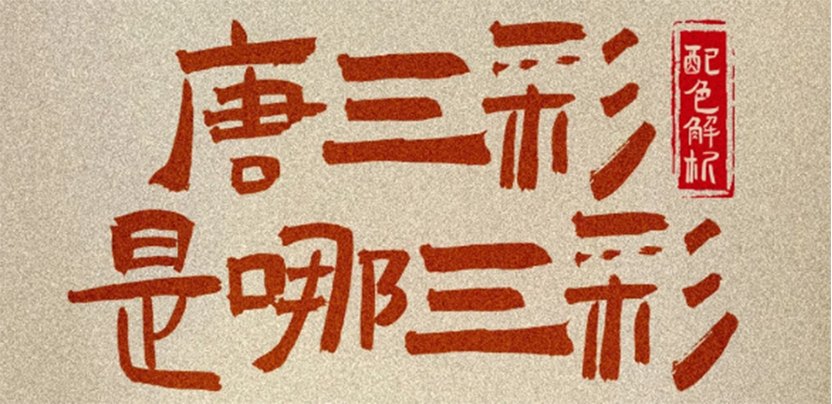 唐三彩
配色解析
是哪三彩